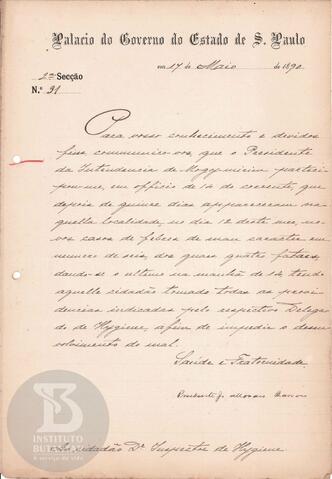 Palacio do Governo do Estado de S. Paulo
em 17 de Maio de 1890
2ª Secção
N.º 31
Para vosso conhecimento e devidos
fins communico-vos, que o Presidente
da Intendencia de Mogy-mirim partici
pou-me, em officio de 14 do corrente, que
depois de quinze dias appareceram na
quella localidade, no dia 12 deste mez, no
vos casos de febres de mau caracter em
numero de seis, dos quaes quatro fataes,
dando-se o ultimo na manhã de 14, tendo
aquelle cidadão tomado todas as provi
dencias indicadas pelo respectivo Delega
do de Hygiene, afim de impedir o desen
volvimento do mal.
Saúde e Fraternidade
Prudente J. de Moraes Barros
Ao cidadão Dr. Inspector de Hygiene
INSTITUTO
BUTANTAN
A serviço da vida